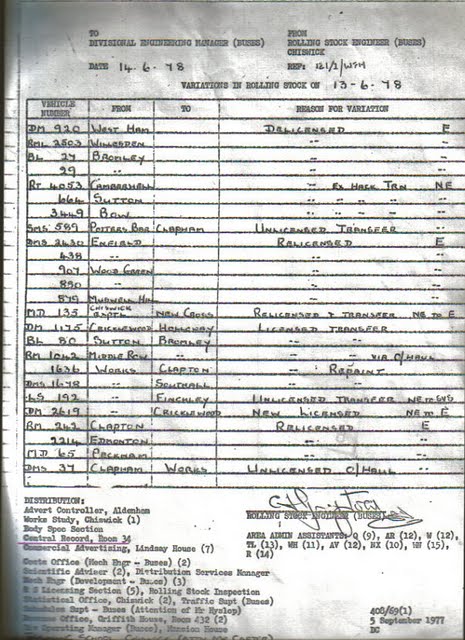 TO FROM
DIVISIONAL ENGINEERING MANAGER (BUSES) ROLLING STOCK ENGINEER (BUSES)
CHISWICK
DATE 14-6-78 REF: 121/2/WFH
VARIATIONS IN ROLLING STOCK ON 13-6-78
VEHICLE NUMBER FROM TO REASON FOR VARIATION
DM 920 WEST HAM DELICENSED E
RML 2503 WILLESDEN -"- -"-
BL 27 BROMLEY -"-
29 -"- -"-
RT 4053 CAMBERWELL -"- EX HACK TRN NE
664 SUTTON -"- -"- -"- -"-
3449 BOW -"- -"- -"- -"-
SMS 589 POTTERS BAR CLAPHAM UNLICENSED TRANSFER -"-
DMS 2430 ENFIELD RELICENSED E
438 -"- -"- -"-
907 WOOD GREEN -"- -"-
890 -"- -"- -"-
579 MUSWELL HILL -"- -"-
MD 135 CHISWICK EXPTL NEW CROSS RELICENSED & TRANSFER NE TO E
DM 1175 CRICKLEWOOD HOLLOWAY LICENSED TRANSFER
BL 80 SUTTON BROMLEY -"- -"-
RM 1042 MIDDLE ROW -"- -"- -"- VIA O/HAUL
1636 WORKS CLAPTON -"- REPAINT
DMS 1678 -"- SOUTHALL -"- -"-
LS 192 -"- FINCHLEY UNLICENSED TRANSFER NE TO
DM 2619 -"- CRICKLEWOOD NEW LICENSED NE TO E
RM 242 CLAPTON RELICENSED E
2214 EDMONTON -"- -"-
MD 65 PECKHAM -"- -"-
DMS 37 CLAPHAM WORKS UNLICENSED O/HAUL -"-
DISTRIBUTION:
Advert Controller, Aldenham
Works Study, Chiswick (1)
Body Spec Section
Central Record, Room 34
Commercial Advertising, Lindsay House (7)
Costs Office (Mech Engr - Buses) (2)
Scientific Adviser (2), Distribution Services Manager
Mech Engr (Development - Buses) (3)
R S Licensing Section (5), Rolling Stock Inspection
Statistical Office, Chiswick (2), Traffic Supt (Buses)
Schedules Supt - Buses (Attention of Mr Hyslop)
Revenue Office, Griffith House, Room 432 (2)
Operating Manager (Buses), Mansion House
ROLLING STOCK ENGINEER (BUSES)
AREA ADMIN ASSISTANTS: Q (9), AR (12), W (12),
TL (13), WH (11), AV (12), NX (10), HW (15),
R (14)
408/69(1)
5 September 1977
DC